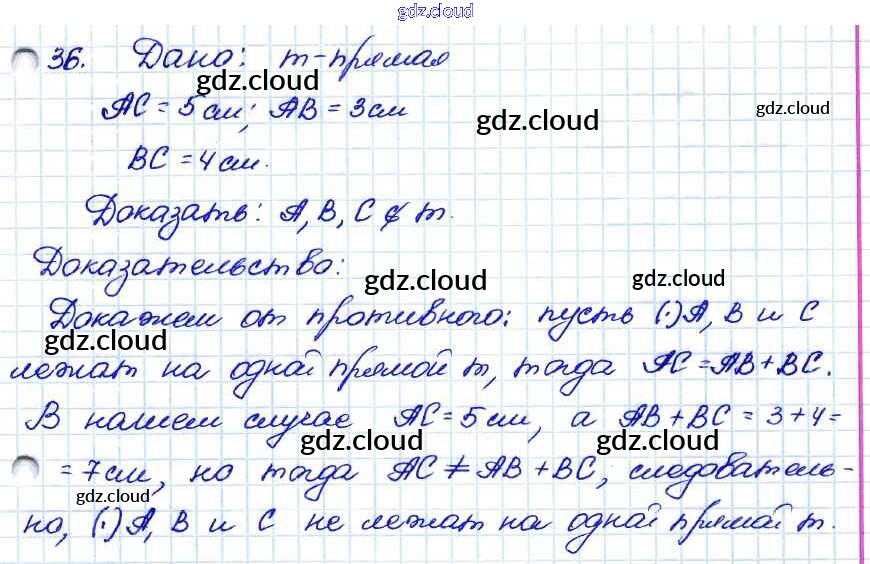 gdz.cloud
36. Дано: m-прямая
gdz.cloud
gdz.cloud
AC = 5 см; AB = 3 см
gdz.cloud
BC = 4 см.
Доказать: A, B, C ∉ m.
Доказательство:
gdz.cloud
gdz.cloud
Докажем от противного: пусть (·)A, B и C
gdz.cloud
лежат на одной прямой m, тогда AC = AB + BC.
В нашем случае AC = 5 см, а AB + BC = 3 + 4 =
gdz.cloud
gdz.cloud
= 7 см, но тогда AC ≠ AB + BC, следователь-
gdz.cloud
но, (·)A, B и C не лежат на одной прямой m.
gdz.cloud